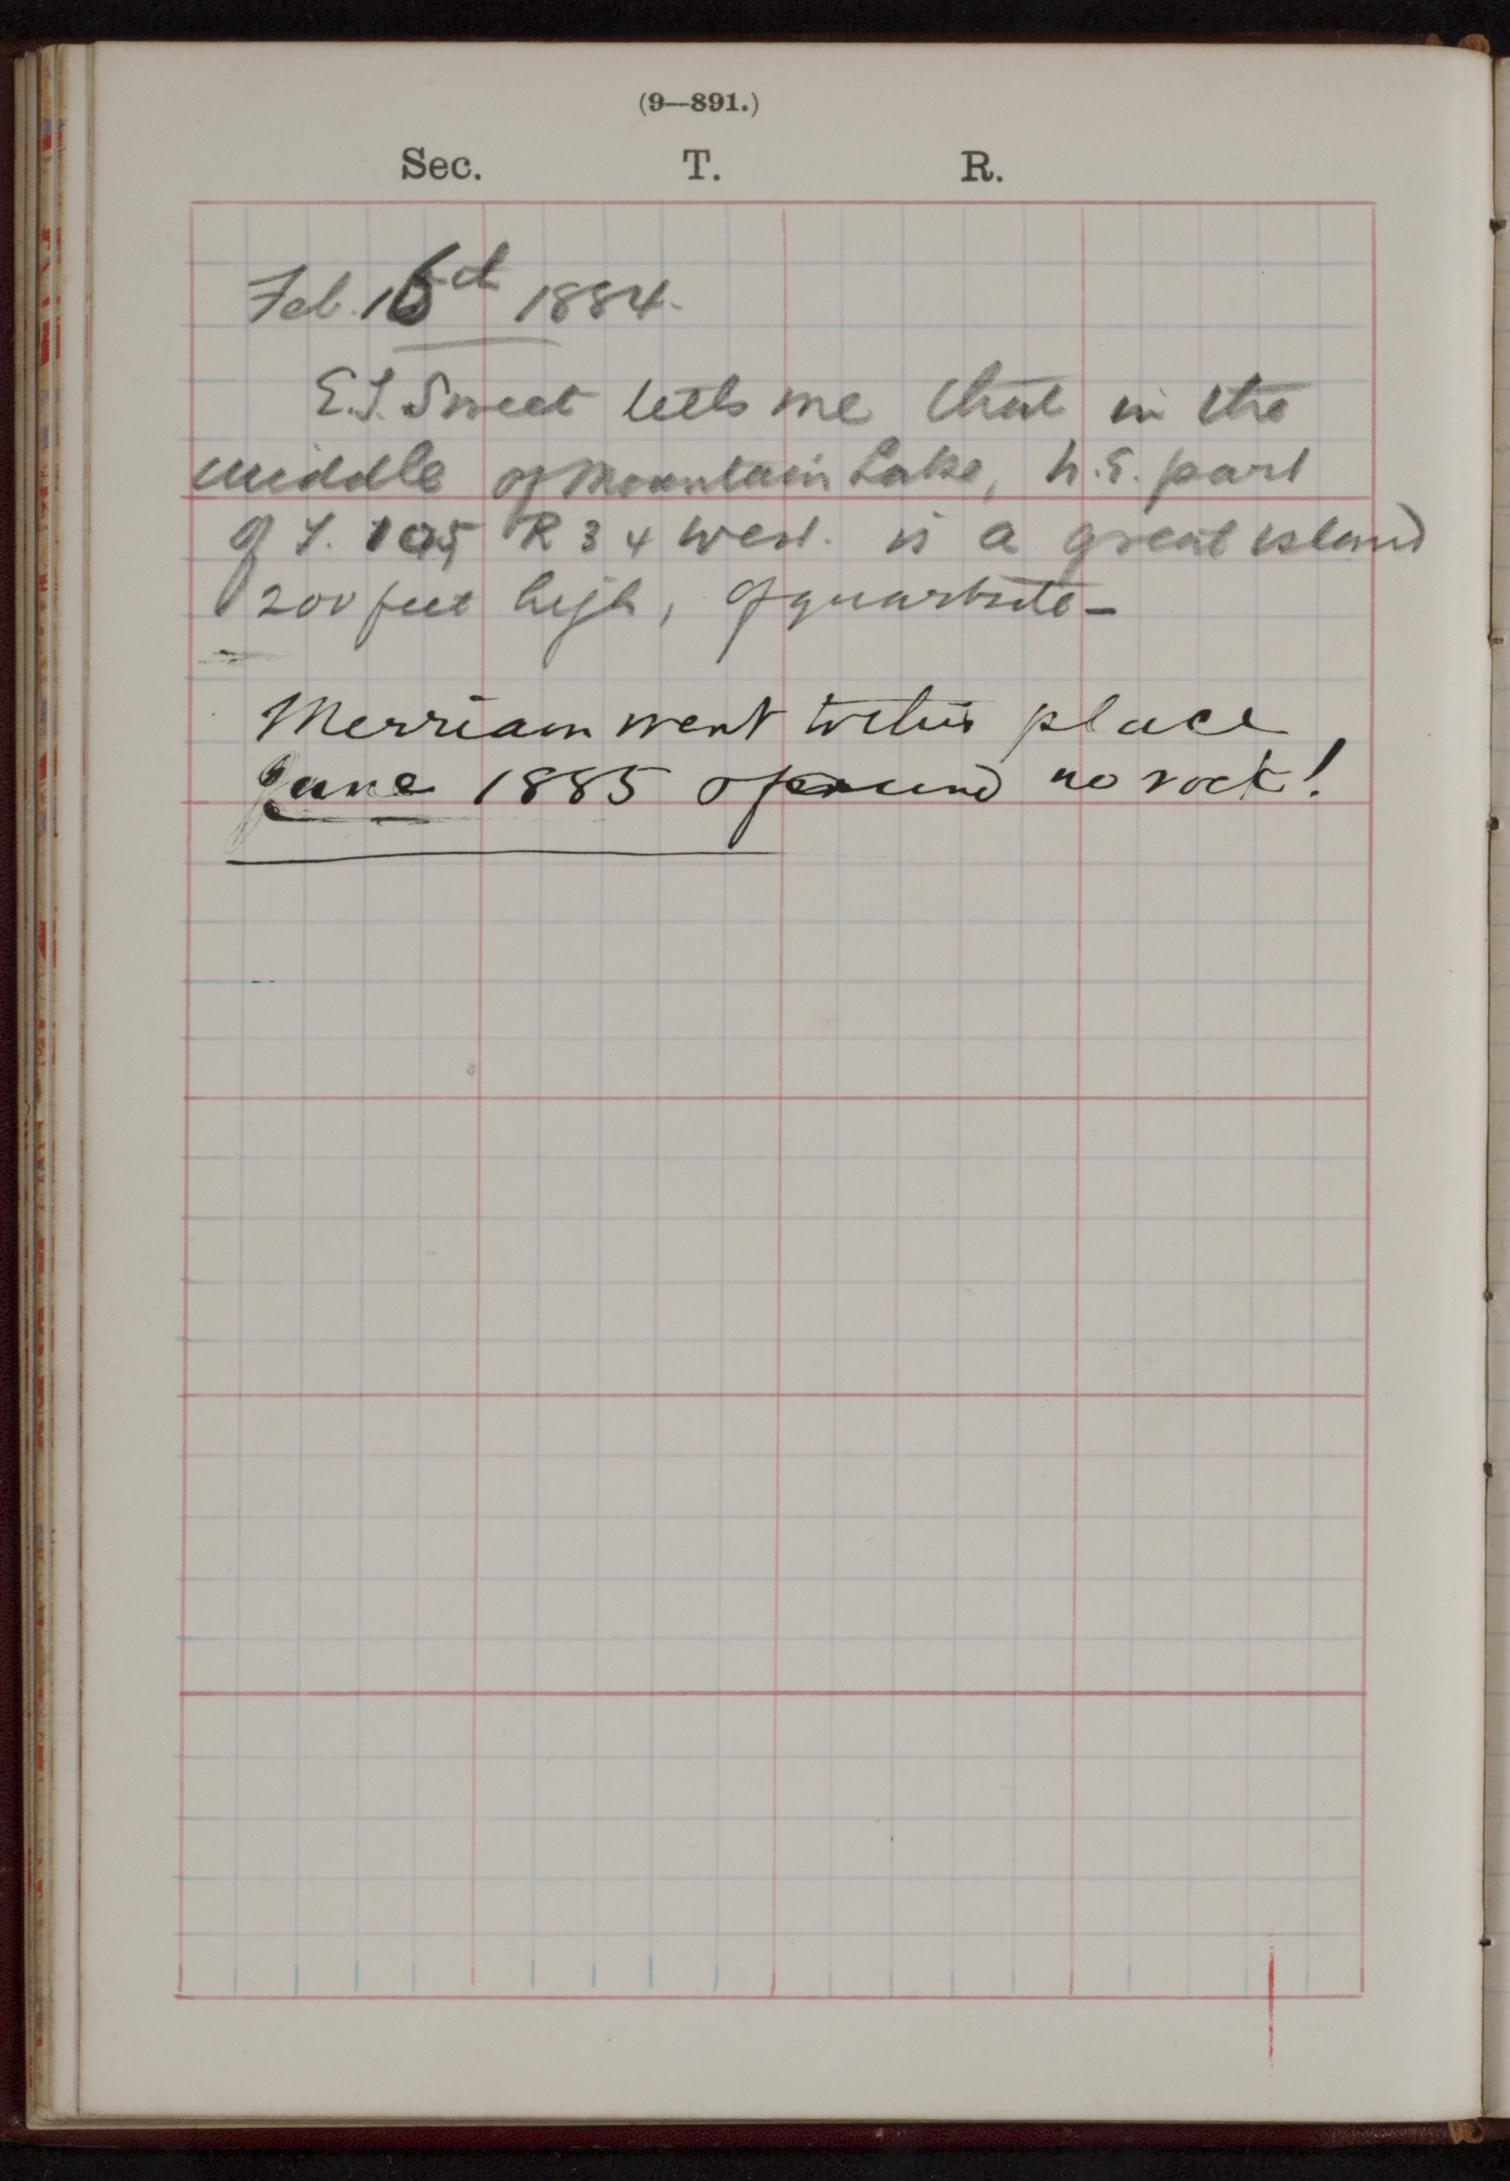 (9—891.)
Sec. T. R.
Feb. 16th 1884.
E.T. Sweet tells me that in the
middle of Mountain Lake, N.E. part
of T. 105 R 34 West. is a great island
200 feet high, of quartzite—
Merriam went to this place
June 1885 & found no rock!